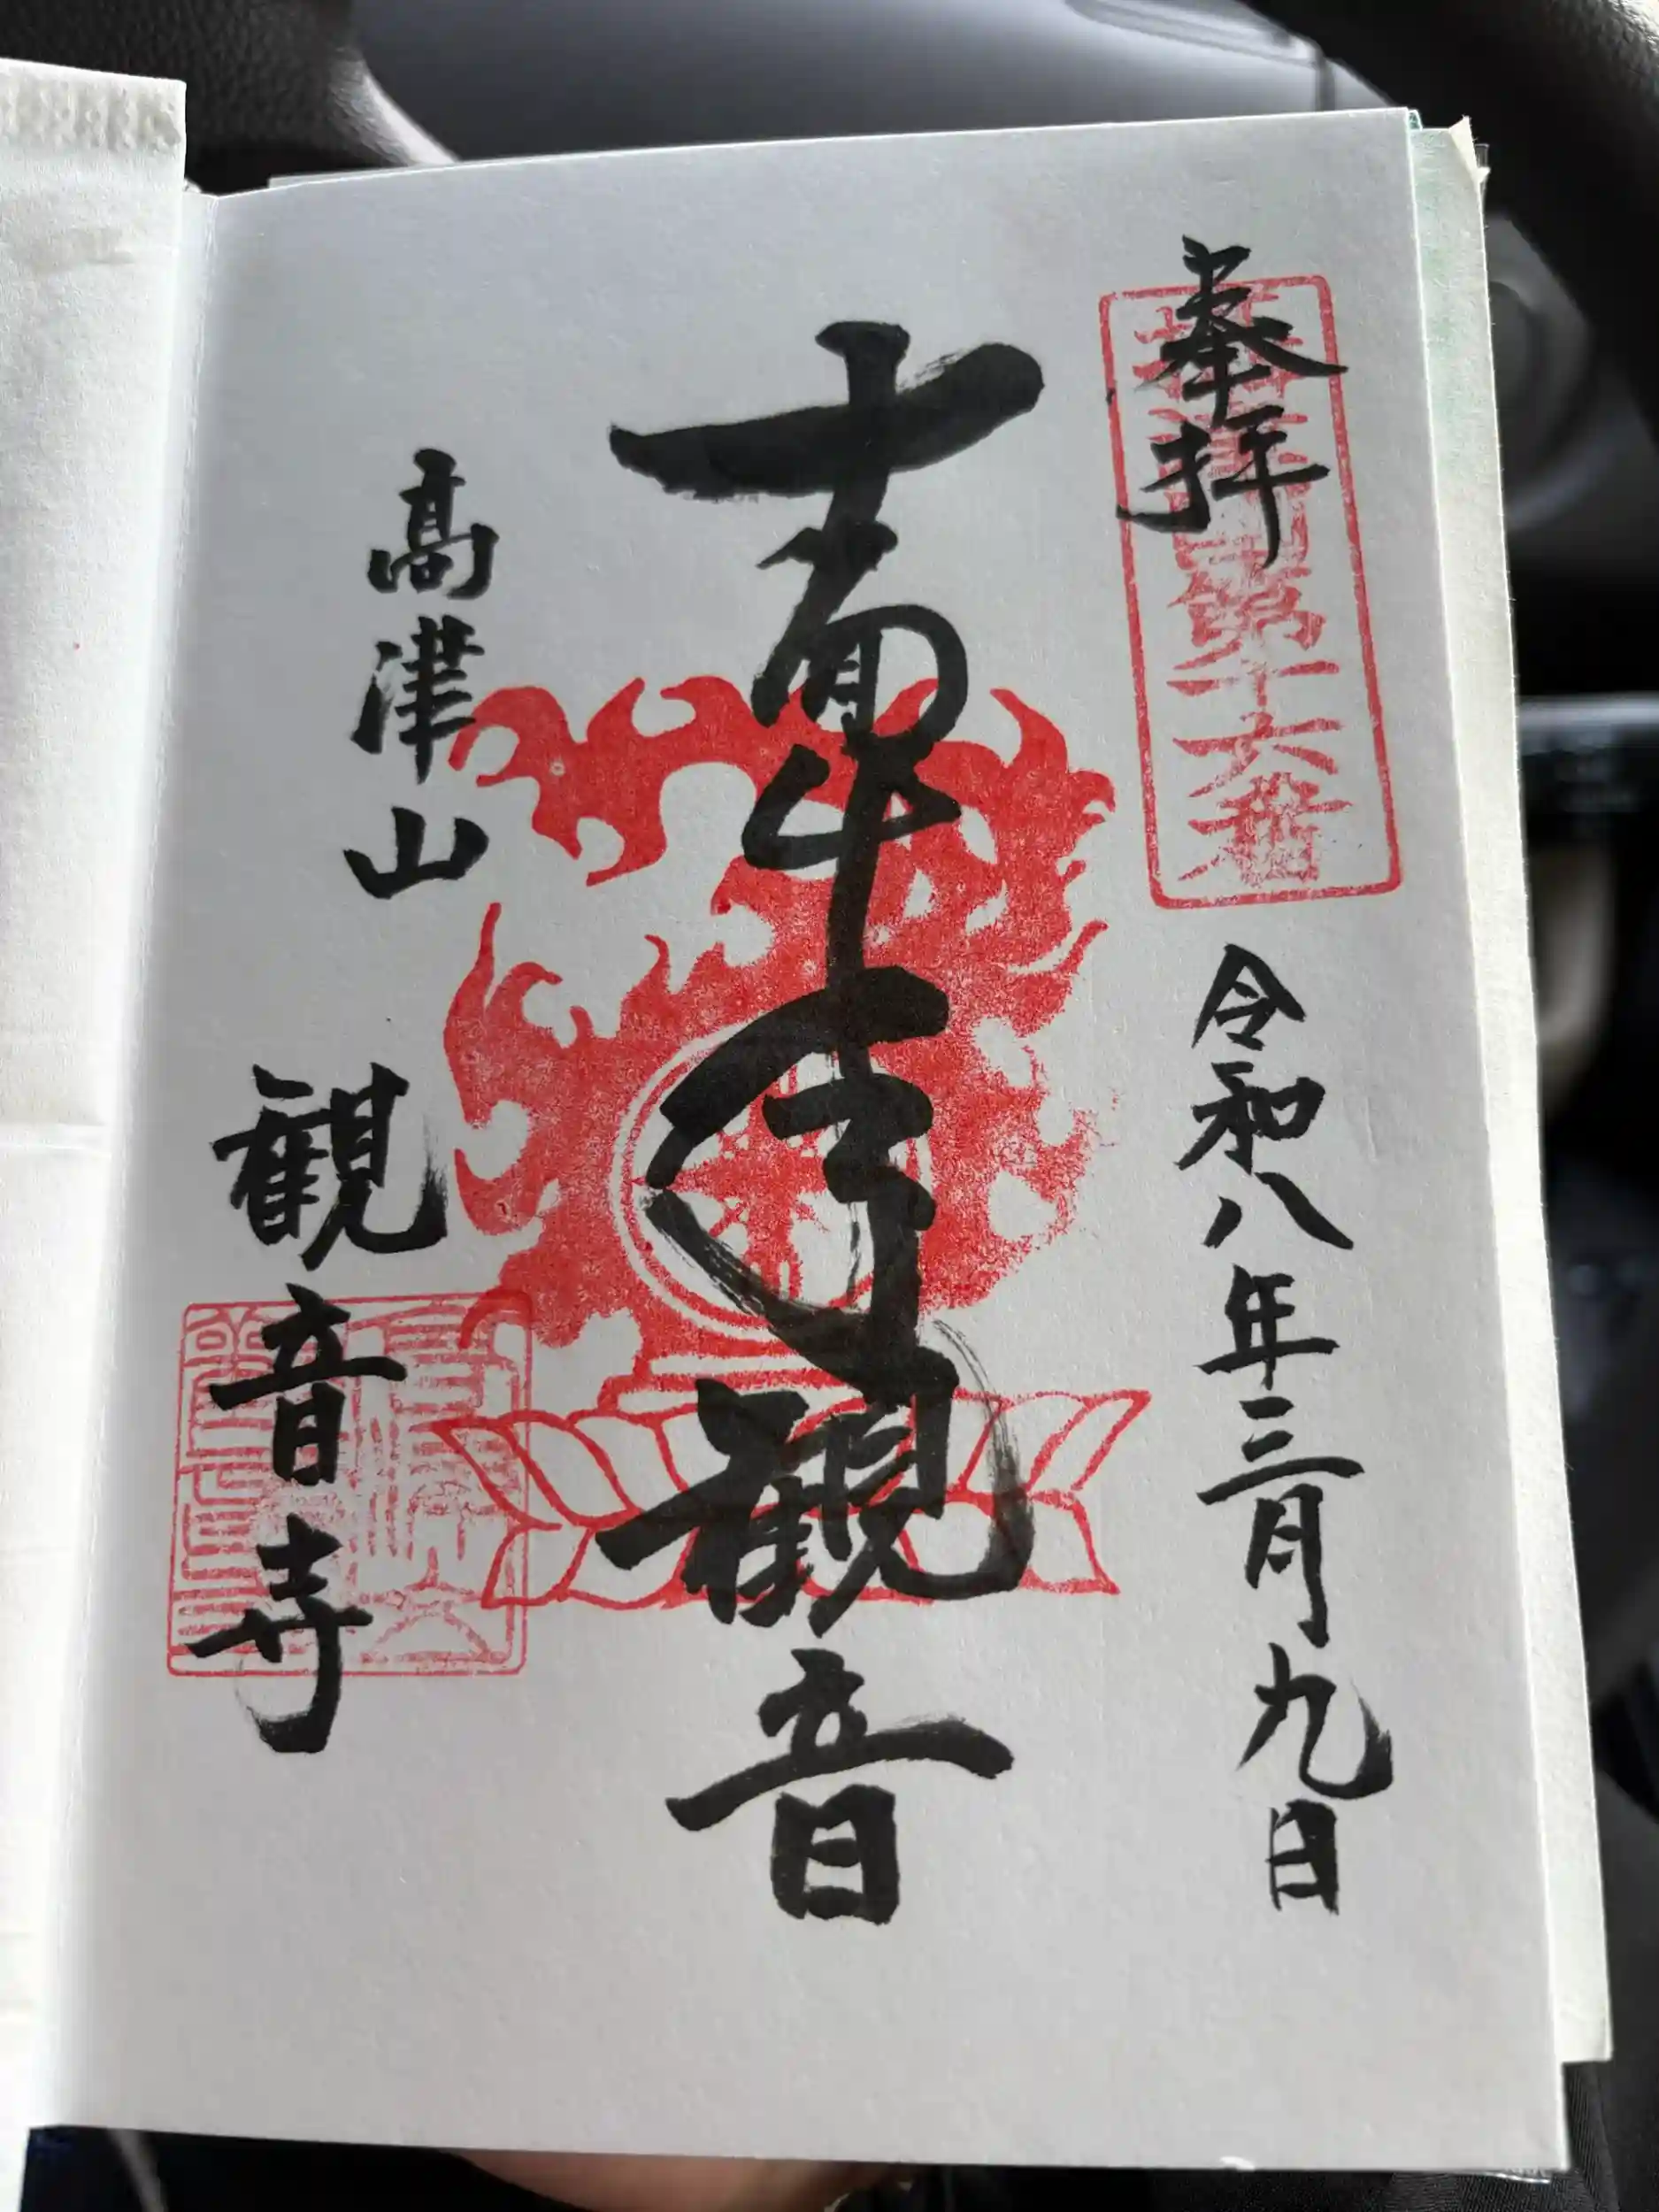 奉拝
第十六番
令和八年三月九日
十一面千手観音
髙津山
観音寺